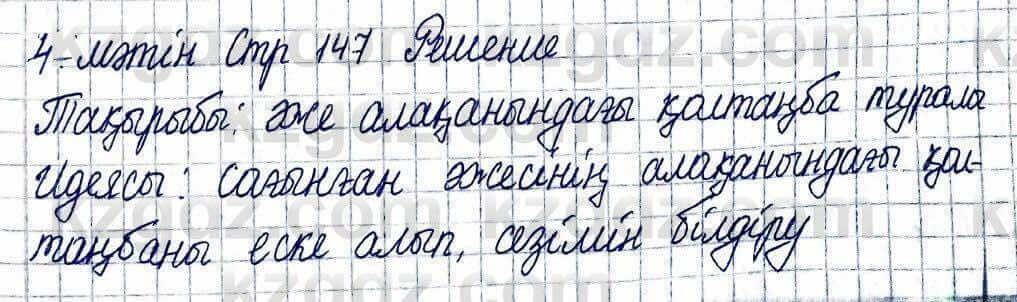 4-мәтін Стр 147 Решение
Тақырыбы: әже алақанындағы қолтаңба туралы
Идеясы: сағынған әжесінің алақанындағы қол-
таңбаны еске алып, сезімін білдіру